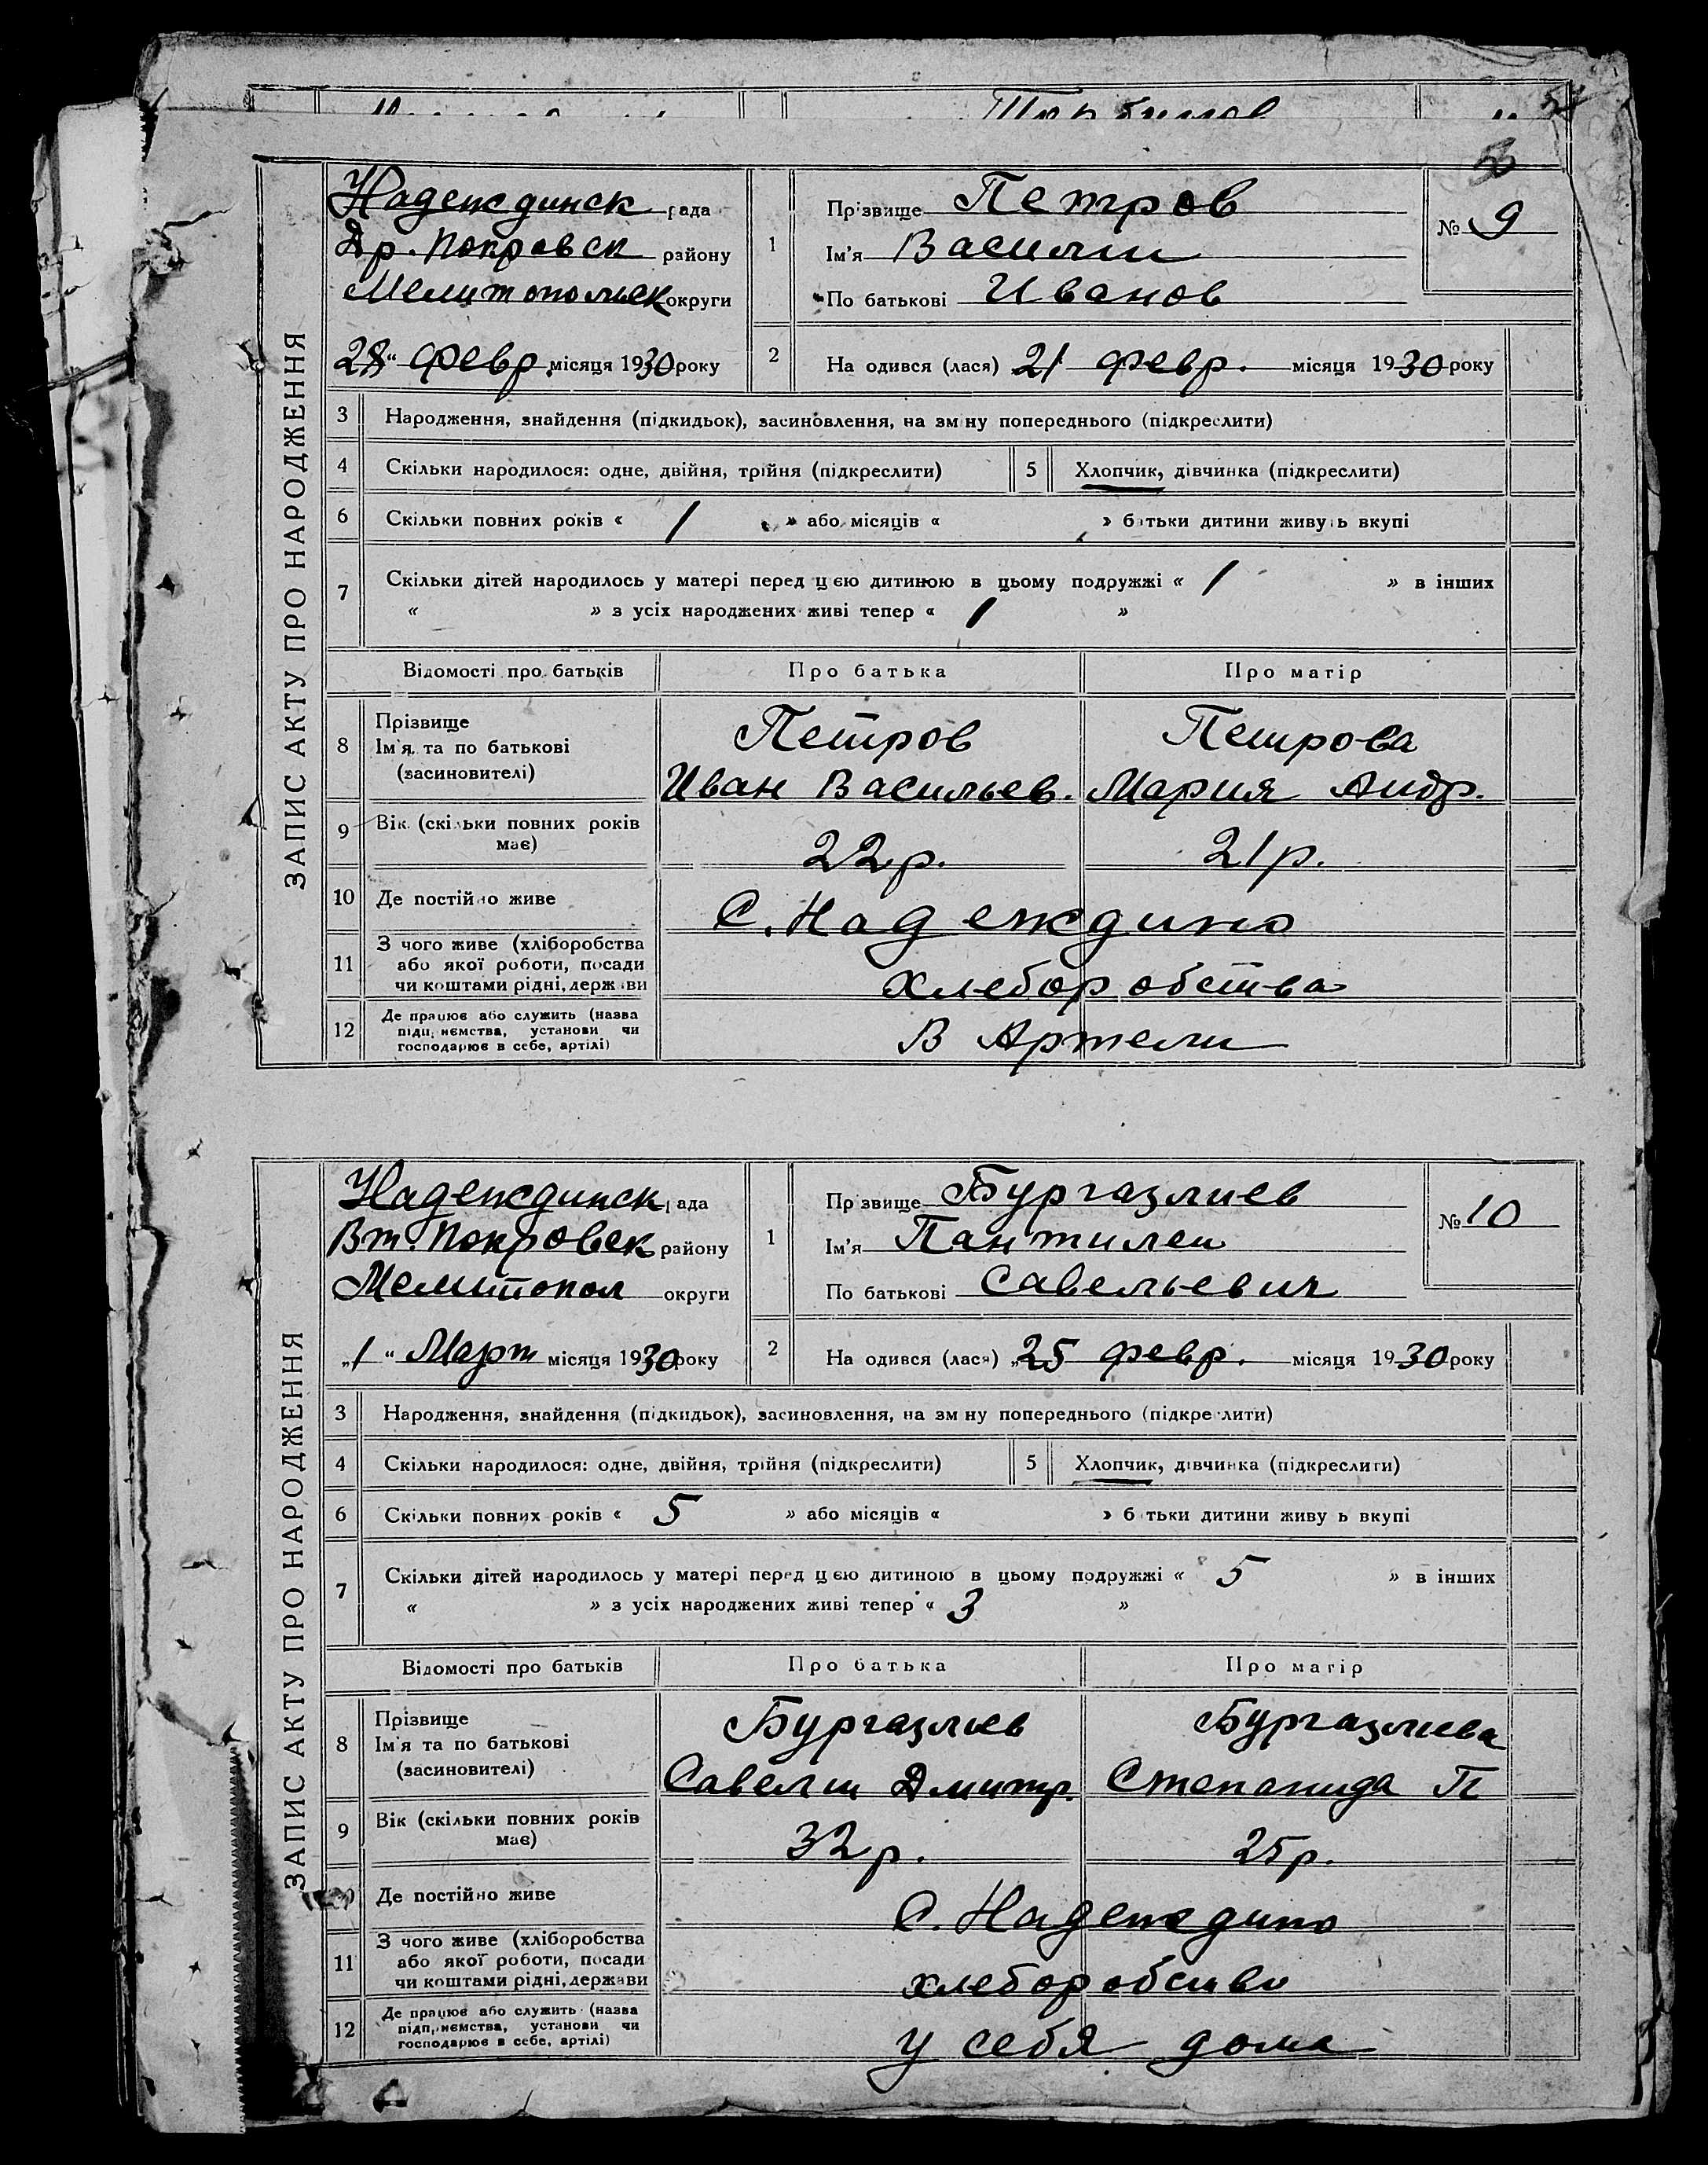 53
Надеждинск рада
Др. Покровск району
Мелитопольск округи
28 " февр. місяця 1930 року
1
Прізвище Петров
Ім'я Василии
По батькові Иванов
№ 9
2
На одився (лася) 21 февр. місяця 1930 року
ЗАПИС АКТУ ПРО НАРОДЖЕННЯ
3 Народження, знайдення (підкидьок), засиновлення, на зм ну попереднього (підкреслити)
4 Скільки народилося: одне, двійня, трійня (підкреслити) 5 Хлопчик, дівчинка (підкреслити)
6 Скільки повних років « 1 » або місяців « » батьки дитини живуть вкупі
7 Скільки дітей народилось у матері перед цією дитиною в цьому подружжі « 1 » в інших
« » з усіх народжених живі тепер « 1 »
Відомості про батьків Про батька Про матір
8 Прізвище
Ім'я та по батькові
(засиновителі)
Петров
Иван Васильев.
Петрова
Мария Андр.
9 Вік (скільки повних років
має)
22 р.
21 р.
10 Де постійно живе С. Надеждино
11 З чого живе (хліборобства
або якої роботи, посади
чи коштами рідні, держави
хлеборобства
12 Де працює або служить (назва
підприємства, установи чи
господарює в себе, артілі)
В Артели
Надеждинск рада
Вт. Покровск району
Мелитопол округи
„1 " Март місяця 1930 року
1
Пр звище Бургазлиев
Ім'я Пантилеи
По батькові Савельевич
№ 10
2
На одився (лася) „25 февр. місяця 1930 року
ЗАПИС АКТУ ПРО НАРОДЖЕННЯ
3 Народження, знайдення (підкидьок), засиновлення, на зм ну попереднього (підкреслити)
4 Скільки народилося: одне, двійня, трійня (підкреслити) 5 Хлопчик, дівчинка (підкреслити)
6 Скільки повних років « 5 » або місяців « » б тьки дитини живу ь вкупі
7 Скільки дітей народилось у матері перед цією дитиною в цьому подружжі « 5 » в інших
« » з усіх народжених живі тепер « 3 »
Відомості про батьків Про батька Про матір
8 Прізвище
Ім'я та по батькові
(засиновителі)
Бургазлиев
Савелии Дмитр.
Бургазлиева
Степанида П
9 Вік (скільки повних років
має)
32 р.
25 р.
10 Де постійно живе С. Надеждино
11 З чого живе (хліборобства
або якої роботи, посади
чи коштами рідні, держави
хлеборобство
12 Де працює або служить (назва
підприємства, установи чи
господарює в себе, артілі)
у себя дома